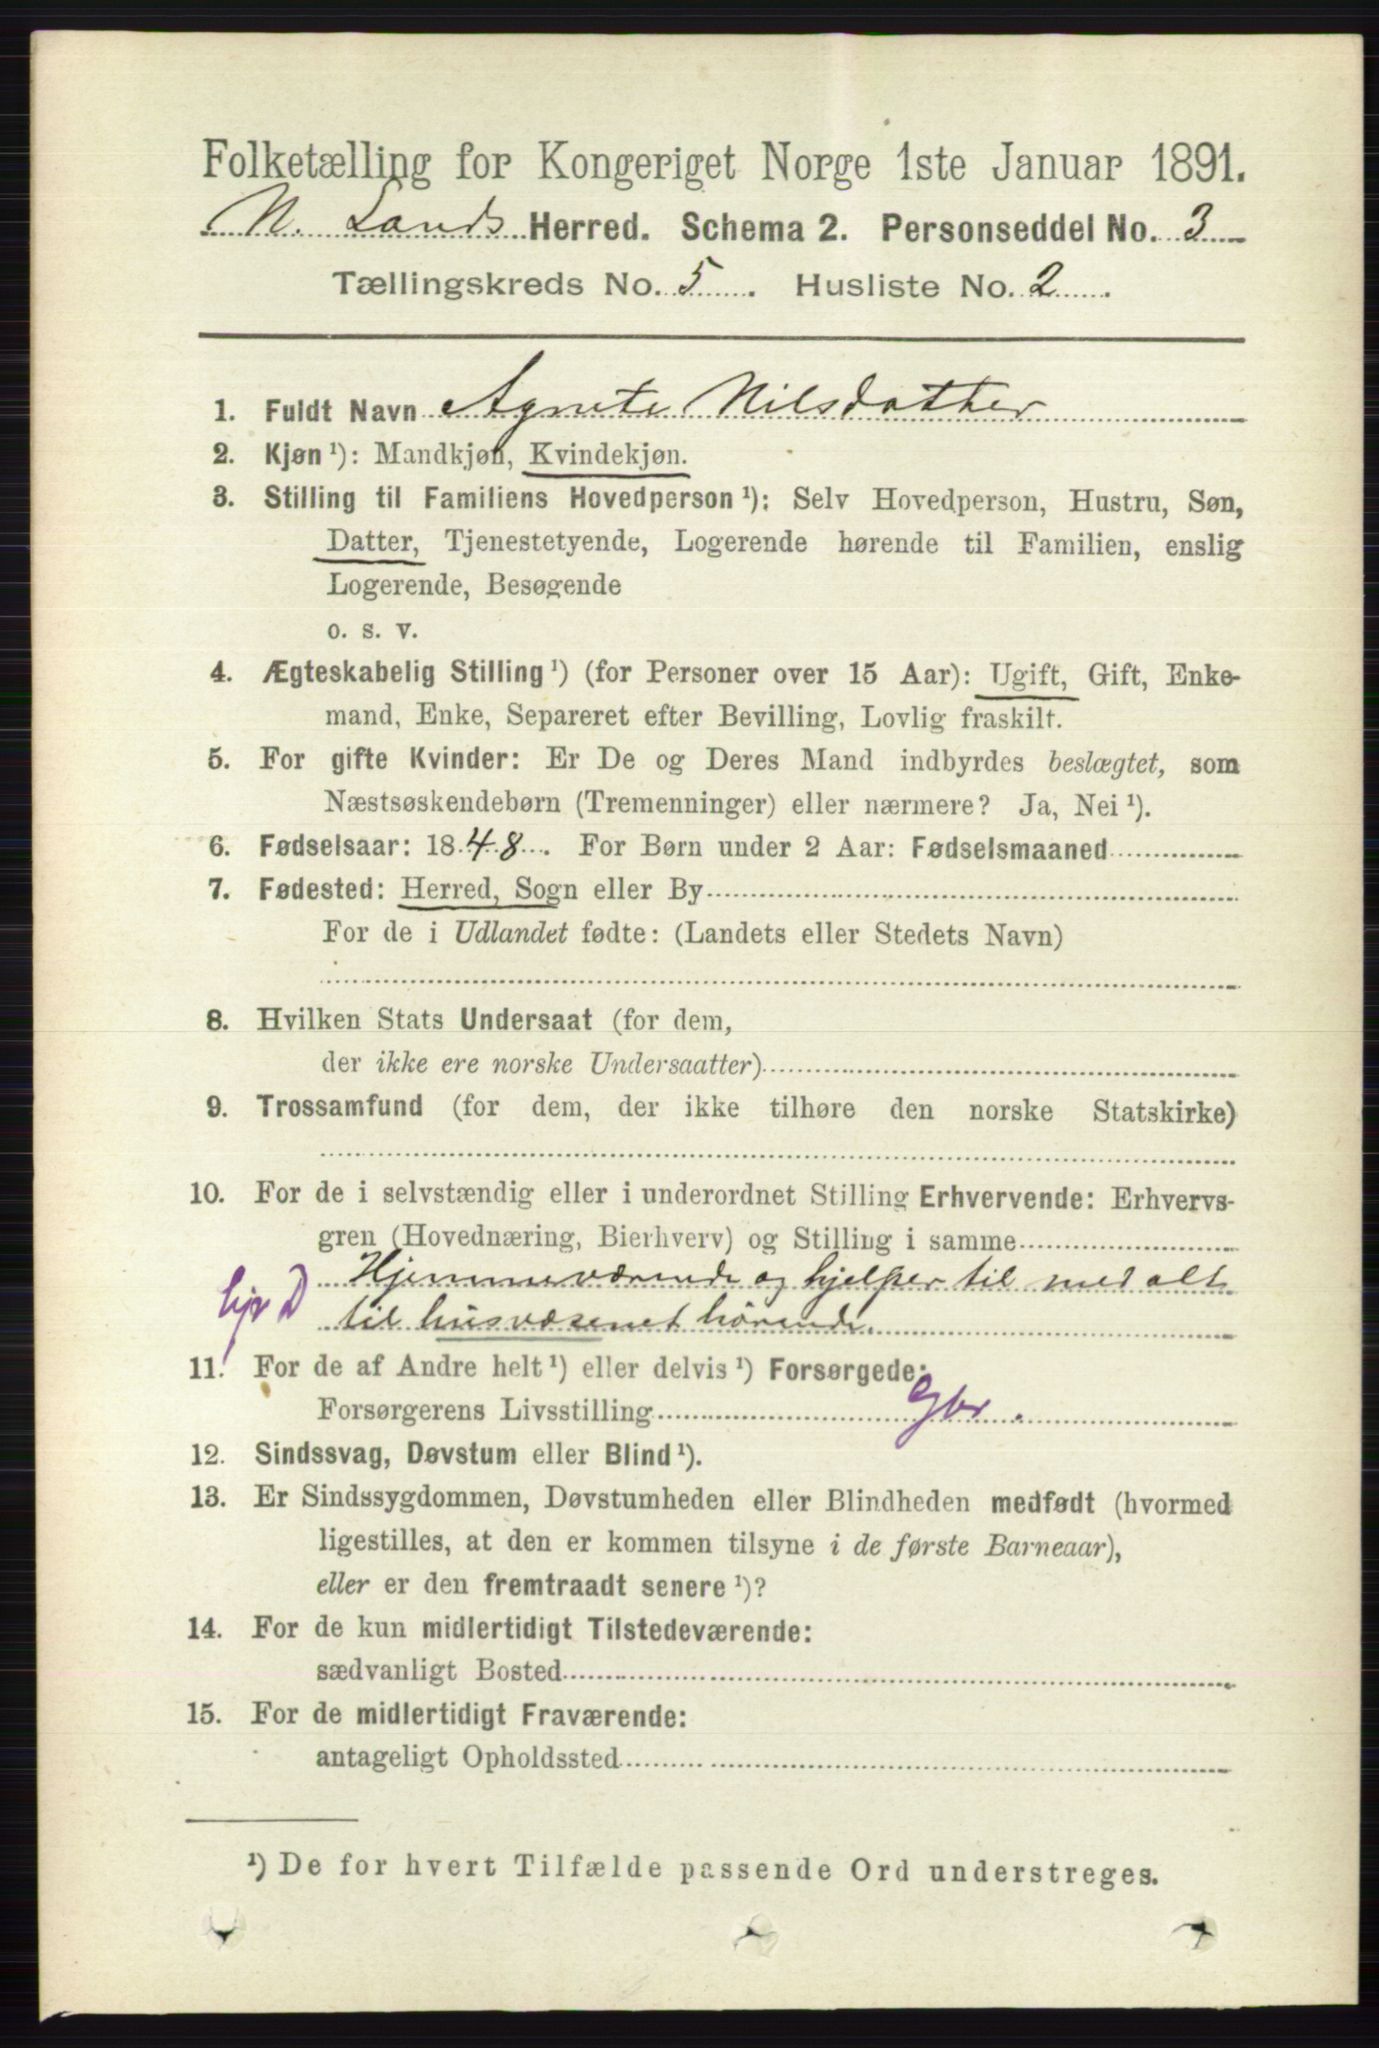 Folketælling for Kongeriget Norge 1ste Januar 1891.
N. Lands Herred. Schema 2. Personseddel No. 3
Tællingskreds No. 5. Husliste No. 2.
1. Fuldt Navn Agnete Nilsdatter
2. Kjøn ¹): Mandkjøn, Kvindekjøn.
3. Stilling til Familiens Hovedperson ¹): Selv Hovedperson, Hustru, Søn,
Datter, Tjenestetyende, Logerende hørende til Familien, enslig
Logerende, Besøgende
o. s. v.
4. Ægteskabelig Stilling ¹) (for Personer over 15 Aar): Ugift, Gift, Enke-
mand, Enke, Separeret efter Bevilling, Lovlig fraskilt.
5. For gifte Kvinder: Er De og Deres Mand indbyrdes beslægtet, som
Næstsøskendebørn (Tremenninger) eller nærmere? Ja, Nei ¹).
6. Fødselsaar: 1848. For Børn under 2 Aar: Fødselsmaaned
7. Fødested: Herred, Sogn eller By
For de i Udlandet fødte: (Landets eller Stedets Navn)
8. Hvilken Stats Undersaat (for dem,
der ikke ere norske Undersaatter)
9. Trossamfund (for dem, der ikke tilhøre den norske Statskirke)
10. For de i selvstændig eller i underordnet Stilling Erhvervende: Erhvervs-
gren (Hovednæring, Bierhverv) og Stilling i samme
Hjemmeværende og hjelper til med alt
hjp D til husvæsenet hørende.
11. For de af Andre helt ¹) eller delvis ¹) Forsørgede:
Forsørgerens Livsstilling Gbr.
12. Sindssvag, Døvstum eller Blind ¹).
13. Er Sindssygdommen, Døvstumheden eller Blindheden medfødt (hvormed
ligestilles, at den er kommen tilsyne i de første Barneaar),
eller er den fremtraadt senere ¹)?
14. For de kun midlertidigt Tilstedeværende:
sædvanligt Bosted
15. For de midlertidigt Fraværende:
antageligt Opholdssted
¹) De for hvert Tilfælde passende Ord understreges.